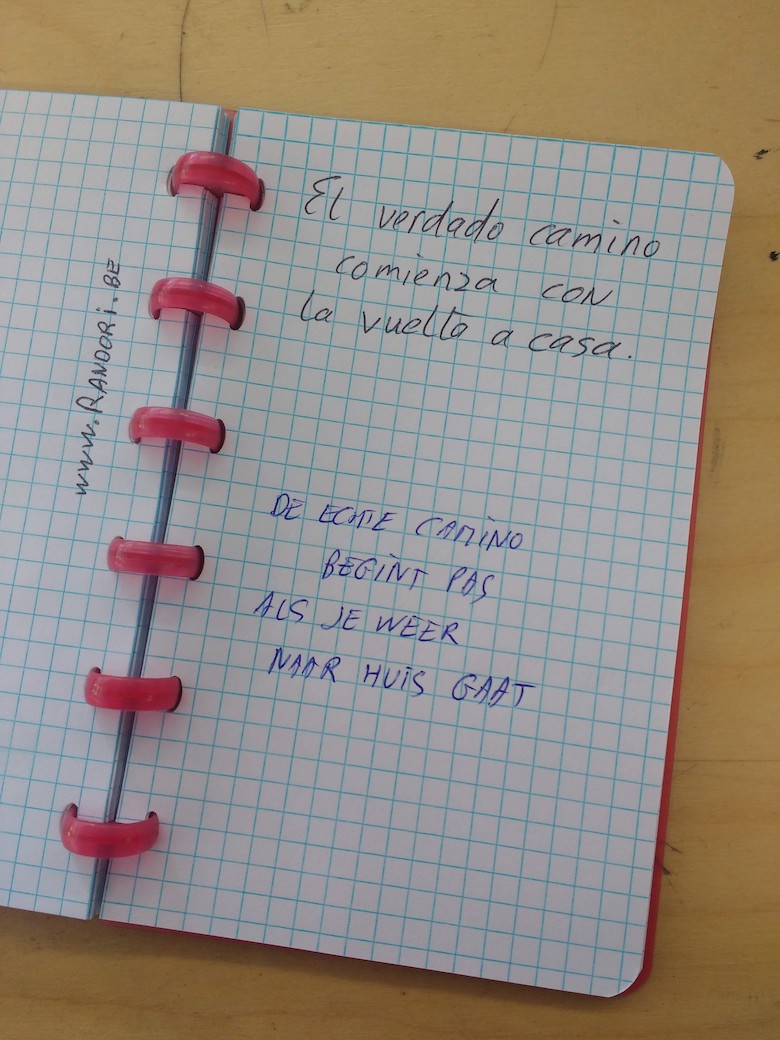 www.RANDORI.BE
El verdado camino
comienza con
la vuelta a casa.
DE ECHTE CAMINO
BEGINT PAS
ALS JE WEER
NAAR HUIS GAAT